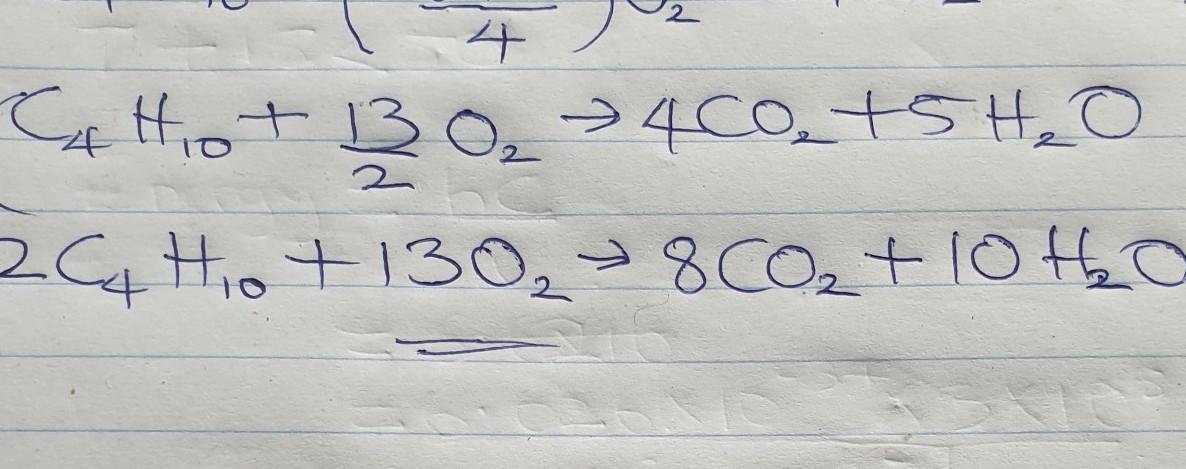 4 ) 2
C₄H₁₀ + 13/2 O₂ → 4CO₂ + 5H₂O
2C₄H₁₀ + 13O₂ → 8CO₂ + 10H₂O